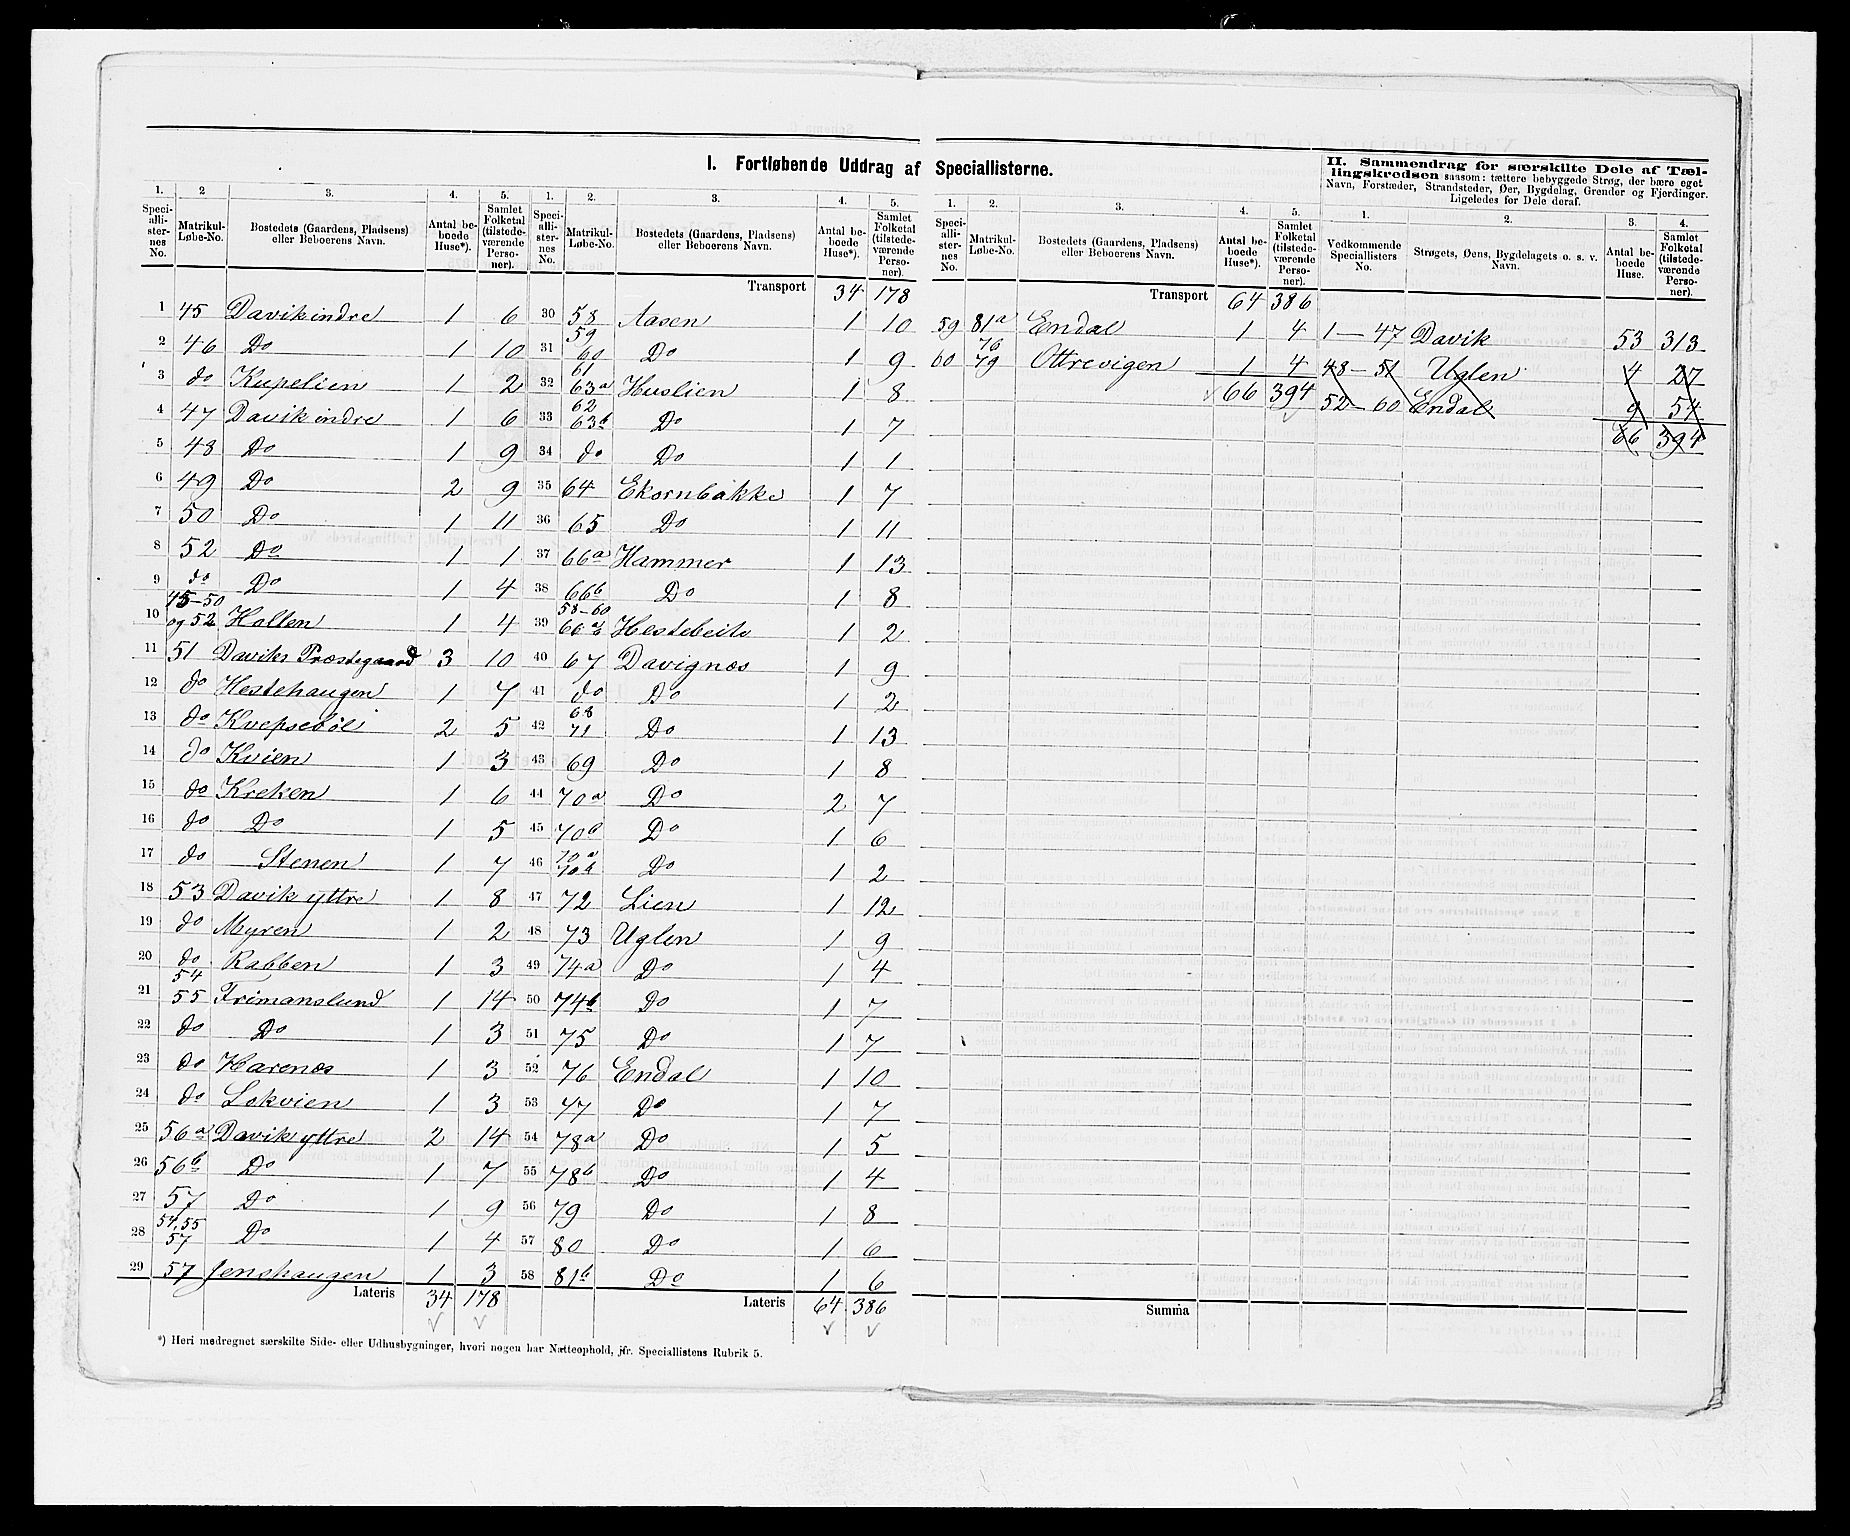 I. Fortløbende Uddrag af Speciallisterne.
II. Sammendrag for særskilte Dele af Tællingskredsen saasom: tættere bebyggede Strøg, der bære eget
Navn, Forstæder, Strandsteder, Øer, Bygdelag, Grender og Fjerdinger.
Ligeledes for Dele deraf.
1. 2 3. 4. 5. 1. 2. 3. 4. 5. 1. 2. 3. 4. 5. 1. 2. 3. 4.
Speciallisternes No. Matrikul-Løbe-No. Bostedets (Gaardens, Pladsens) eller Beboerens Navn. Antal beboede Huse*). Samlet Folketal (tilstedeværende Personer).
Speciallisternes No. Matrikul-Løbe-No. Bostedets (Gaardens, Pladsens) eller Beboerens Navn. Antal beboede Huse*). Samlet Folketal (tilstedeværende Personer).
Speciallisternes No. Matrikul-Løbe-No. Bostedets (Gaardens, Pladsens) eller Beboerens Navn. Antal beboede Huse*). Samlet Folketal (tilstedeværende Personer).
Vedkommende Speciallisters No. Strøgets, Øens, Bygdelagets o. s. v. Navn. Antal beboede Huse. Samlet Folketal (tilstedeværende Personer).
1 45 Davik indre 1 6
2 46 Do 1 10
3 do Kupelien 1 2
4 47 Davik indre 1 6
5 48 Do 1 9
6 49 Do 2 9
7 50 Do 1 11
8 52 Do 1 1
9 do Do 1 4
10 45-50 og 52 Holten 1 4
11 51 Daviks Præstegaard 3 10
12 do Hestehaugen 1 7
13 do Kvepsebøle 2 5
14 do Kvien 1 3
15 do Kreken 1 6
16 do Do 1 5
17 do Stenen 1 7
18 53 Davik yttre 1 8
19 do Myren 1 2
20 do Rabben 1 3
21 54 55 Frimanslund 1 14
22 do Do 1 3
23 do Harenæs 1 3
24 do Lokvien 1 3
25 56a Davik yttre 2 14
26 56b Do 1 7
27 57 Do 1 9
28 54,55 57 Do 1 4
29 57 Jenshaugen 1 3
Lateris 34 178
Transport 34 178
30 58 Aasen 1 10
31 59 60 Do 1 9
32 61 63a Huslien 1 8
33 62 63b Do 1 7
34 do Do 1 1
35 64 Ekornbakke 1 7
36 65 Do 1 11
37 66a Hammer 1 13
38 66b Do 1 8
39 58-60 66 a b Hestebeite 1 2
40 67 Davignæs 1 9
41 do Do 1 2
42 68 71 Do 1 13
43 69 Do 1 8
44 70a Do 2 7
45 70b Do 1 6
46 70a 70b Do 1 2
47 72 Lien 1 12
48 73 Uglen 1 9
49 74a Do 1 4
50 74b Do 1 7
51 75 Do 1 7
52 76 Endal 1 10
53 77 Do 1 7
54 78a Do 1 5
55 78b Do 1 4
56 79 Do 1 8
57 80 Do 1 6
58 81b Do 1 6
Lateris 64 386
Transport 64 386
59 81a Endal 1 4
60 76 79 Ottrevigen 1 4
66 394
Summa
1-47 Davik 53 313
48-51 Uglen 4 27
52-60 Endal 9 54
66 394
*) Heri medregnet særskilte Side- eller Udhusbygninger, hvori nogen har Natteophold, jfr. Speciallistens Rubrik 5.